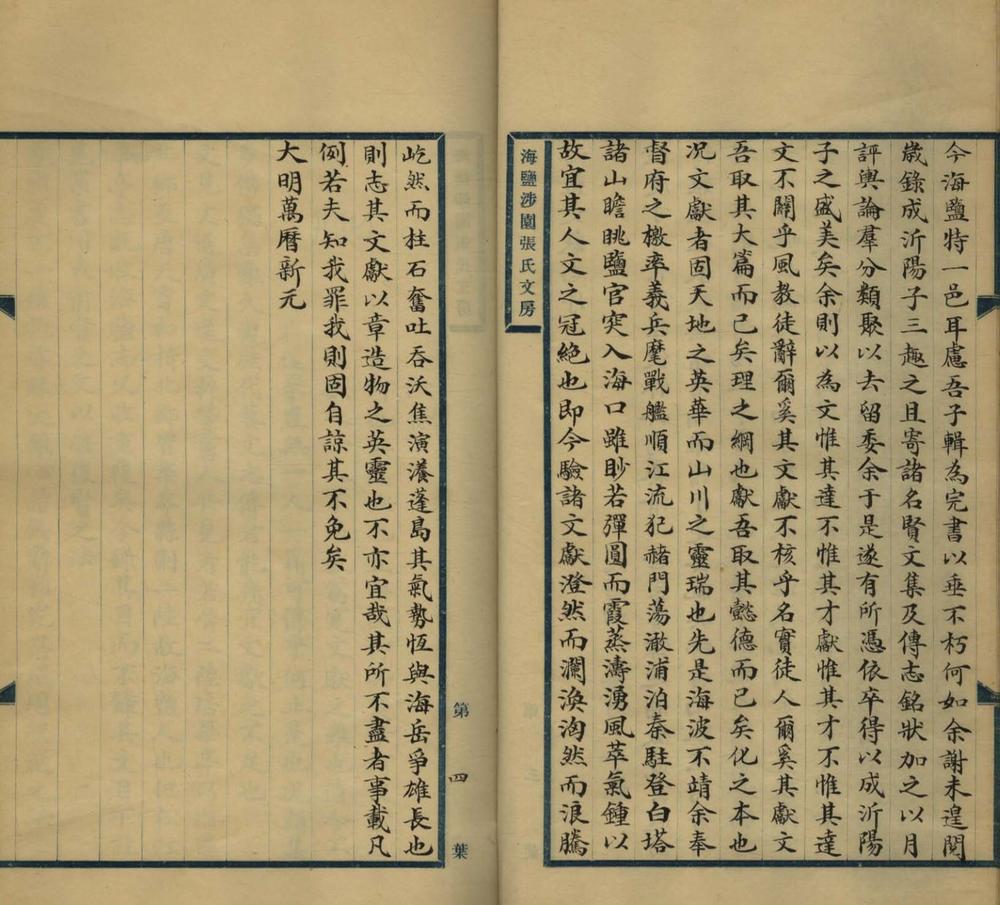 今海鹽特一邑耳慮吾子輯為完書以垂不朽何如余謝未遑閱
歲錄成沂陽子三趣之且寄諸名賢文集及傳志銘狀加之以月
評輿論羣分類聚以去留委余于是遂有所憑依卒得以成沂陽
子之盛美矣余則以為文惟其達不惟其才獻惟其才不惟其達
文不關乎風教徒辭爾奚其文獻不核乎名實徒人爾奚其獻文
吾取其大篇而已矣理之綱也獻吾取其懿德而已矣化之本也
況文獻者固天地之英華而山川之靈瑞也先是海波不靖余奉
督府之檄率義兵麾戰艦順江流犯赭門蕩澉浦泊秦駐登白塔
諸山瞻眺鹽官突入海口雖眇若彈圓而霞蒸濤湧風萃氣鍾以
故宜其人文之冠絕也即今驗諸文獻澄然而瀾渙洶然而浪騰
海鹽涉園張氏文房
屹然而柱石奮吐吞沃焦演瀁蓬島其氣勢恆與海岳爭雄長也
則志其文獻以章造物之英靈也不亦宜哉其所不盡者事載凡
例若夫知我罪我則固自諒其不免矣
大明萬曆新元
第四葉